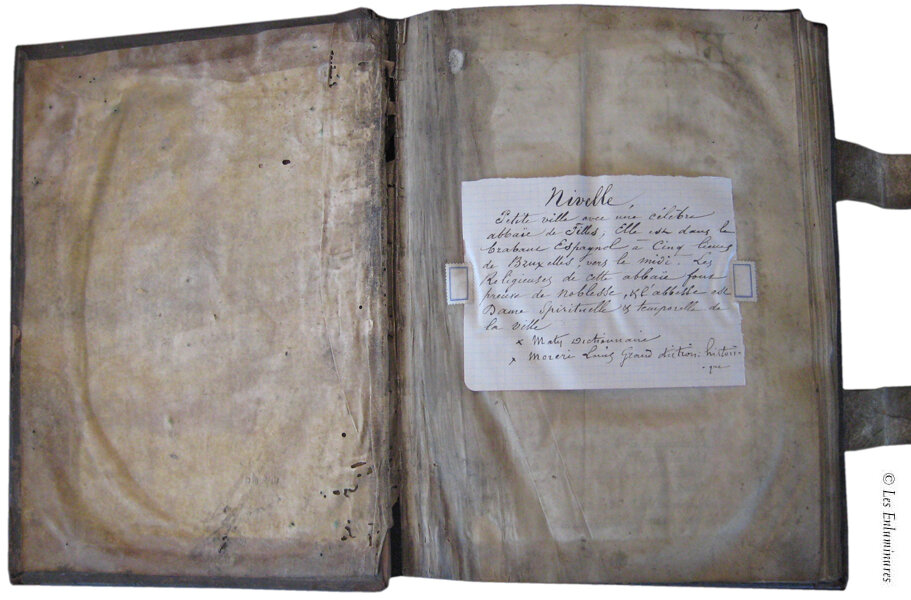 Nivelle
Petite ville avec une célèbre
abbaïe de Filles, Elle est dans le
brabant Espagnol à Cinq lieues
de Bruxelles vers le midi. Les
Religieuses de cette abbaïe font
preuve de Noblesse, & l'abbesse est
Dame spirituelle & temporelle de
la ville
x Maty Dictionnaire
x Moreri Louis Grand diction. histori-
que
© Les Enluminures